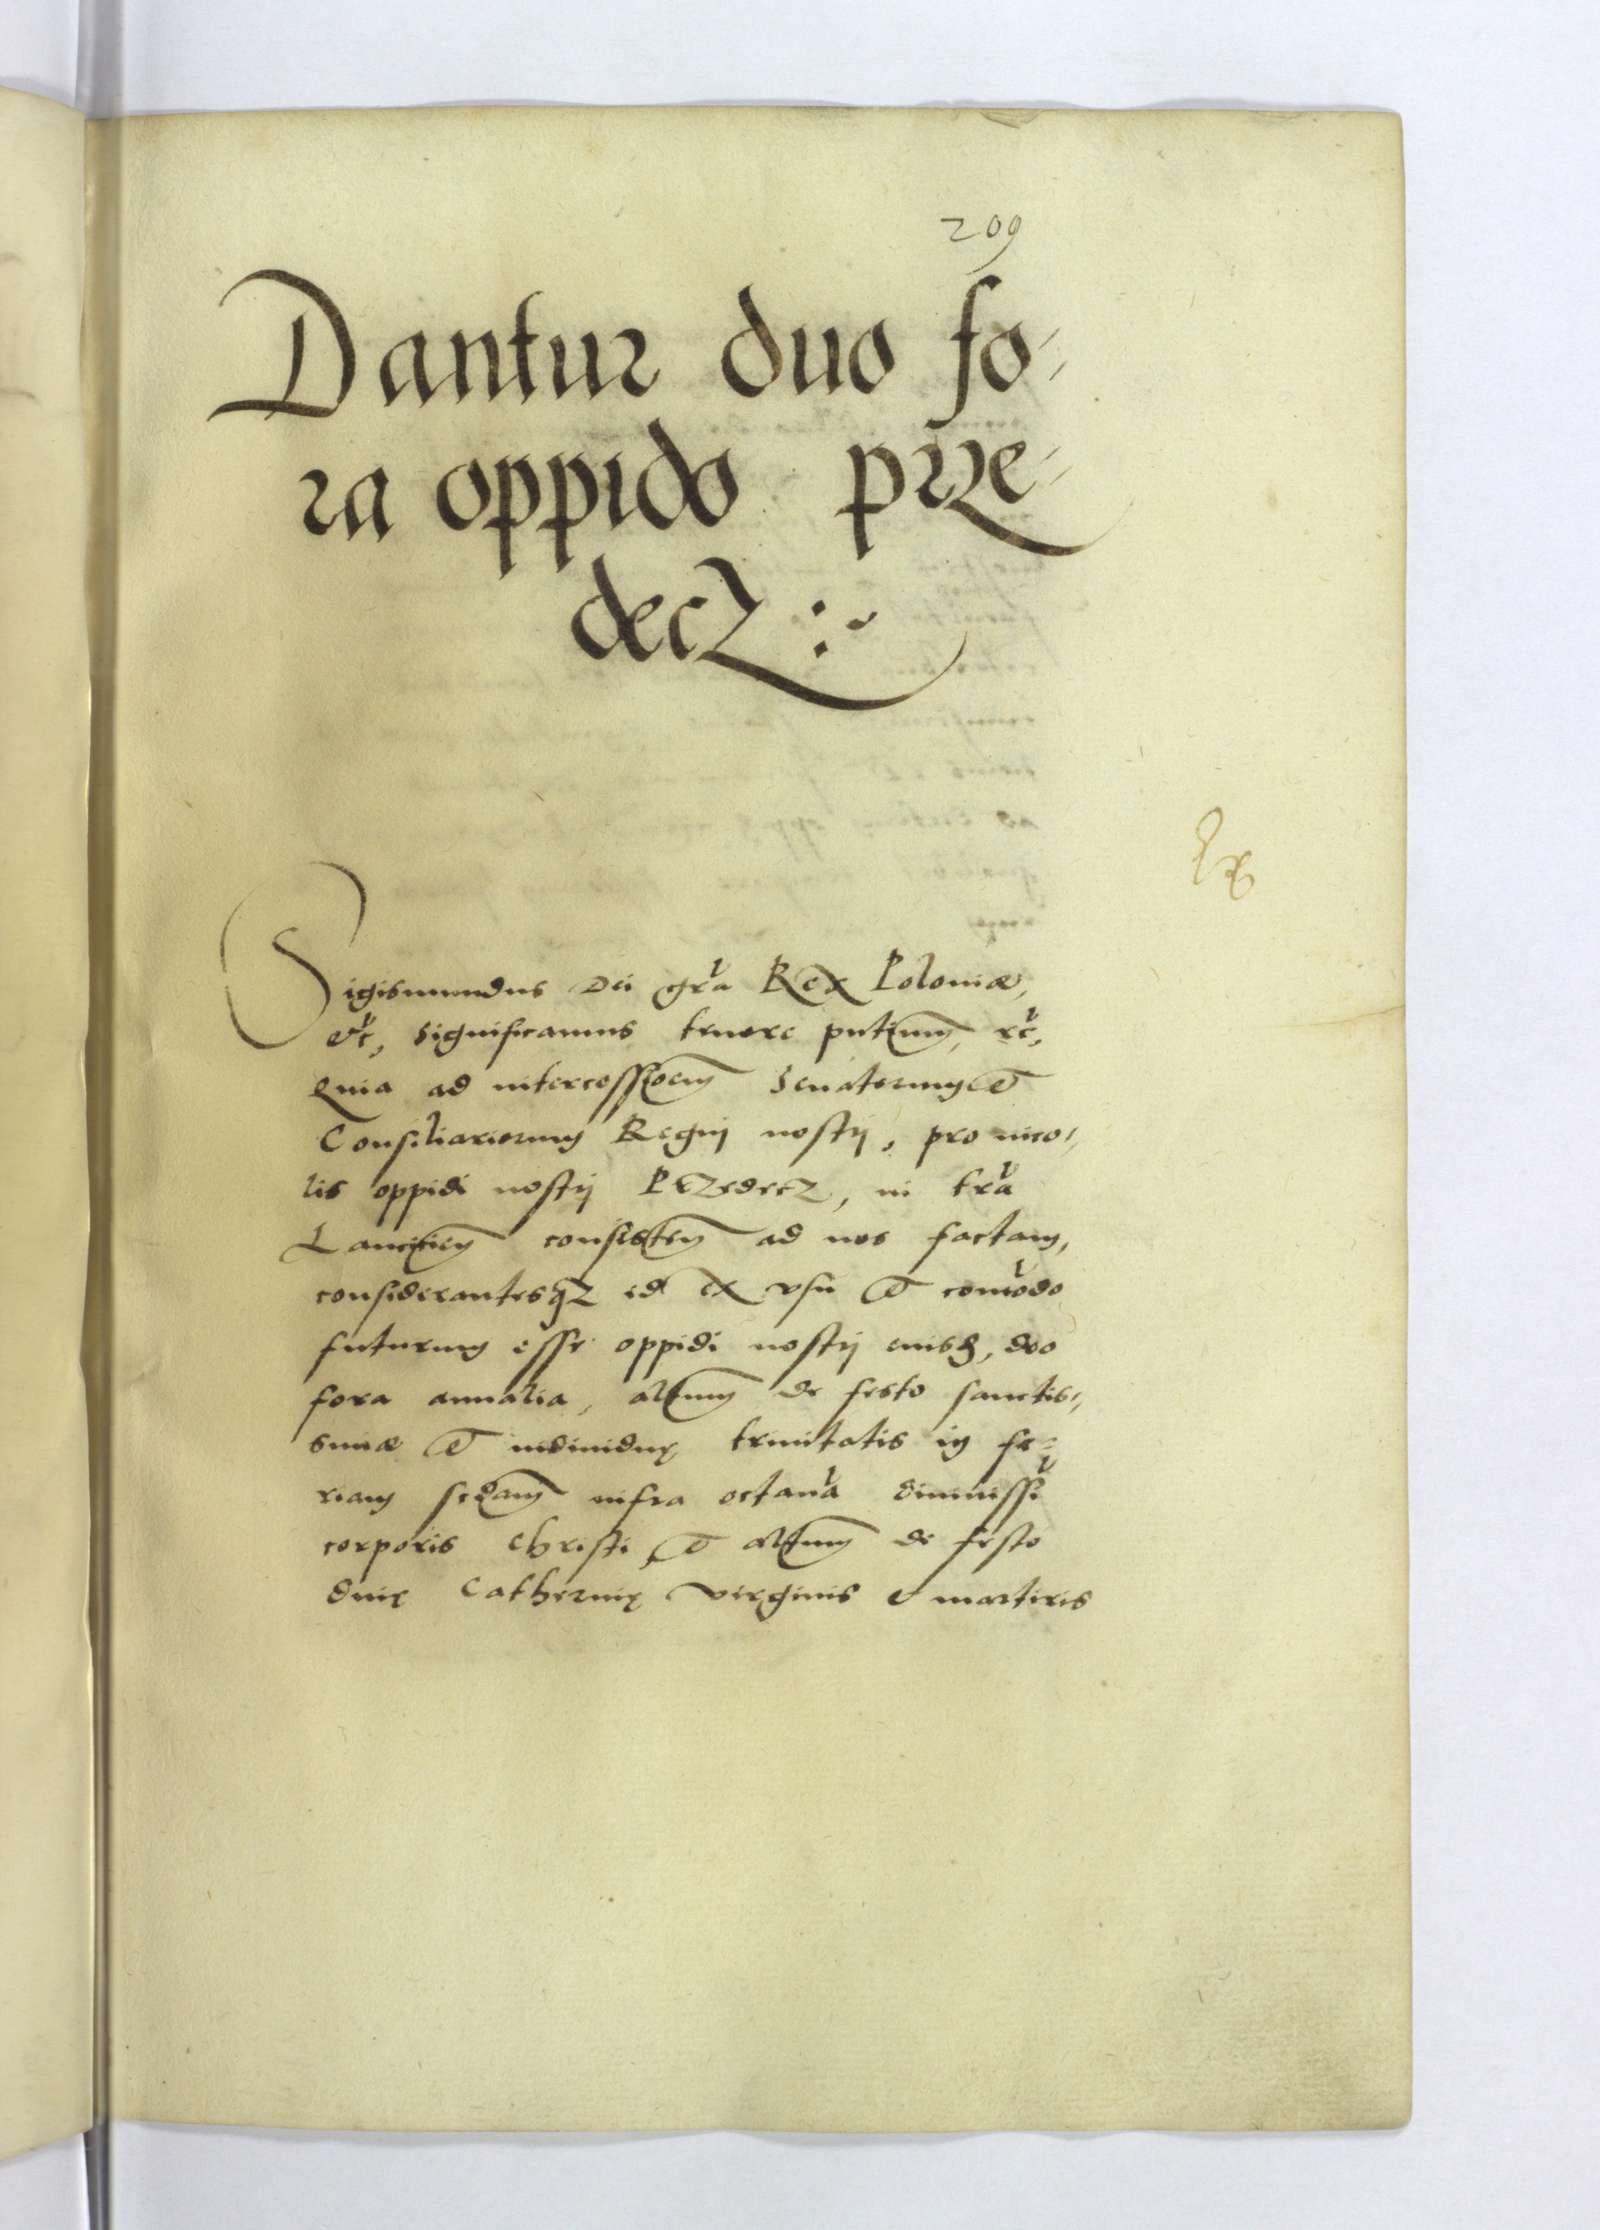 209
Dantur duo fo-
ra oppido prze-
decz :~
Sigismundus Dei gra Rex Poloniæ,
etc, Significamus tenore pntium, etc,
Quia ad intercessioem Senatorum et
Consiliariorum Regni nostri, pro inco-
lis oppidi nostri Przedecz, in tra
Lancicien consisten ad nos factam,
considerantesqz id ex usu et comodo
futurum esse oppidi nostri eiusd, duo
fora annalia, alterum de festo sanctis-
simæ et individuę trinitatis in fe-
riam scdam infra octava divinissi
corporis Christi, et alterum de festo
divę Catherinę virginis et martiris